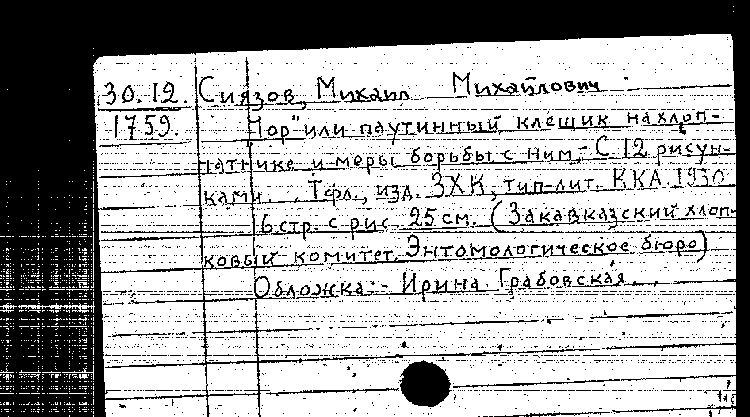 30.12. Сиязов, Михаил Михайлович
1759. "Чор" или паутинный клещик на хлоп-
чатнике и меры борьбы с ним.- С 12 рисун-
ками. Тфл., изд. ЗХК, тип-лит. ККА. 1930
16 стр. с рис. 25 см. (Закавказский хлоп-
ковый комитет. Энтомологическое бюро)
Обложка:- Ирина Грабовская.